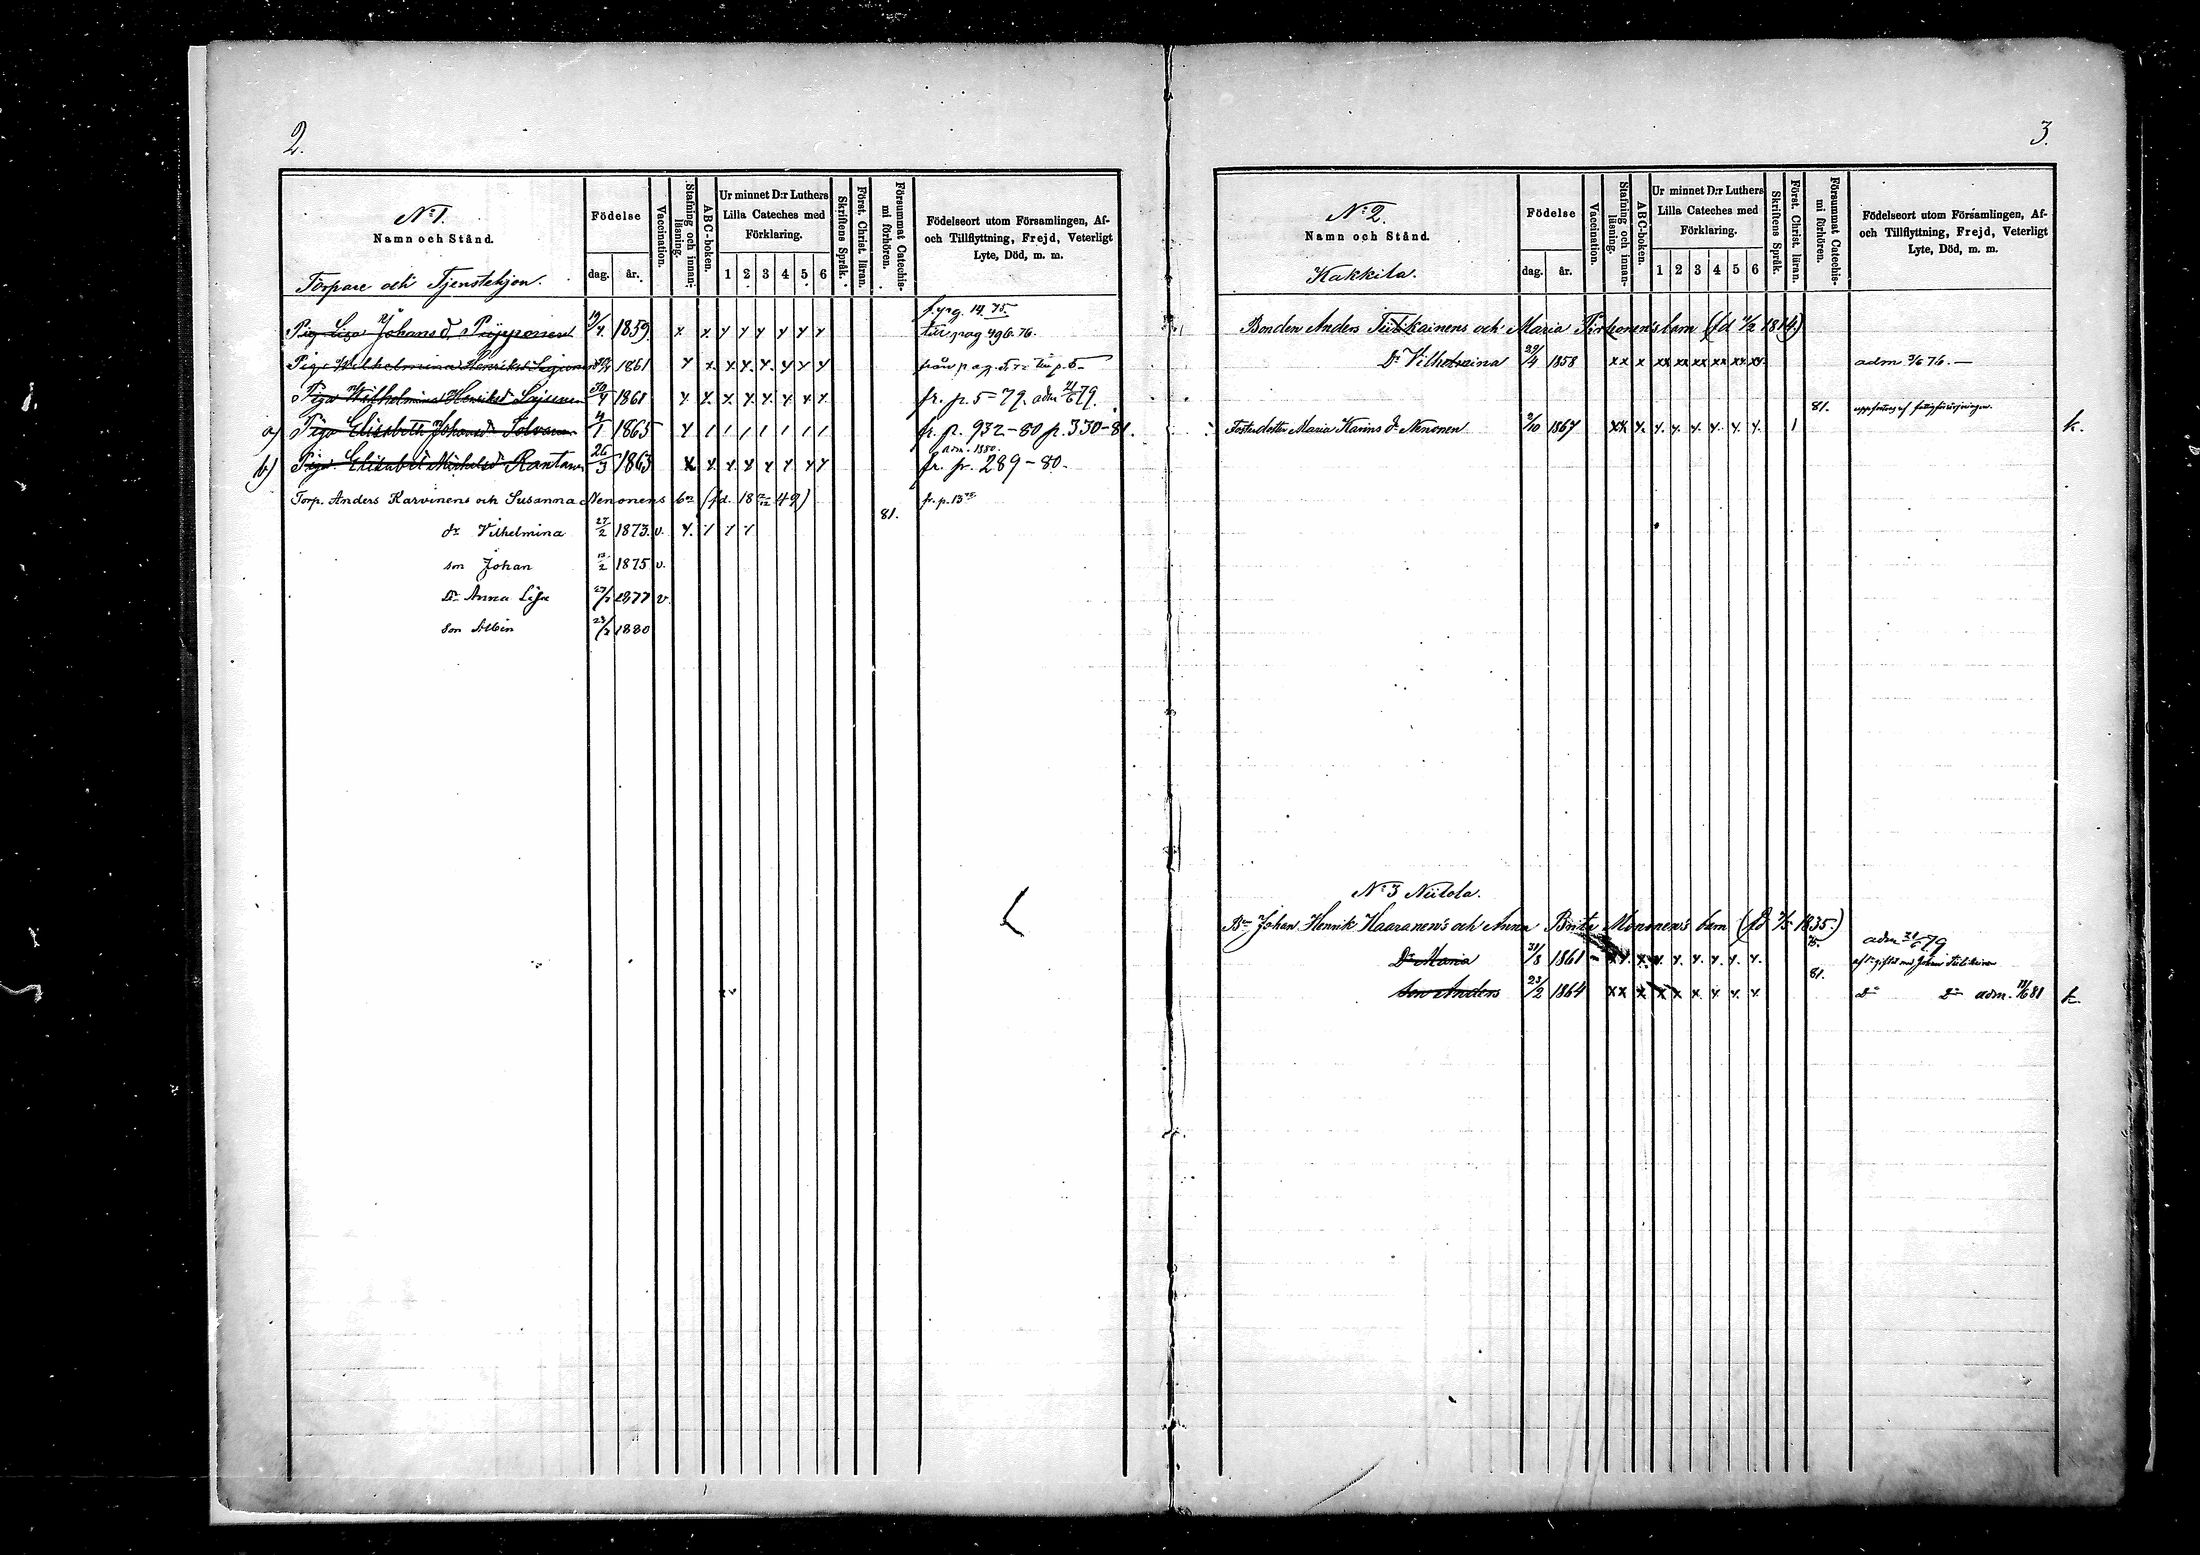 2.
N:o 1.
Namn och Stånd.
Torpare och Tjenstehjon.
Födelse
dag. år.
Vaccination.
Stafning och innanläsning.
ABC-boken.
Ur minnet D:r Luthers Lilla Cateches med Förklaring.
1 2 3 4 5 6
Skriftens Språk.
Först. Christ. läran.
Försummat Catechismi förhören.
Födelseort utom Församlingen, Af-
och Tillflyttning, Frejd, Veterligt
Lyte, Död, m. m.
Pig. Lisa Johansd. 19/4 1859 x x y y y y y y till pag 496. 76.
Piga Wilhelmina Henriksd 1861 y x x y y y y y från pag. 5
Piga Wilhelmina Henriksd 30/4 1861 y x x y y y y y fr. p. 5-79. adm 21/6 79.
a) Piga Elisabeth Johansd. Tolvanen 4/1 1865 y / / / / / / / fr. p. 932-80 p. 330-81.
adm. 1880.
b) Piga Elisabet Michelsd Rantanen 26/3 1863 x y y y y y y y fr. p. 289-80.
Torp. Anders Karvinens och Susanna Nenonens bn (fd. 18 12/12 49) fr. p. 13
81.
dr Vilhelmina 27/2 1873. v. y. / / /
son Johan 13/2 1875 v.
Dr Anna Lisa 27/2 1877 v
son Albin 23/2 1880
3.
N:o 2.
Namn och Stånd.
Kakkila.
Födelse
dag. år.
Vaccination.
Stafning och innanläsning.
ABC-boken.
Ur minnet D:r Luthers Lilla Cateches med Förklaring.
1 2 3 4 5 6
Skriftens Språk.
Först. Christ. läran.
Försummat Catechismi förhören.
Födelseort utom Församlingen, Af-
och Tillflyttning, Frejd, Veterligt
Lyte, Död, m. m.
Bonden Anders Tiilikainens och Maria Pirhonen's barn (fd 1/2 1814)
Dr Vilhelmina 29/4 1858 xx x xx xx xx xx xx xx adm 3/6 76.
81.
Fosterdotter Maria Karins dr Nenonen 2/10 1867 xx y. y. y. y. y. y. y. 1 uppfostras af fattigförsörjningen. k.
N:o 3 Niilola.
Bn Johan Henrik Haaranen's och Anna Brita Mononen's barn (fd 3/5 1835.)
75.
adm 21/6 79
Dr Maria 31/8 1861 xy. x y. y. y. y. y. y. gifted med Johan Tiilikainen
81.
Son Anders 23/2 1864 xx x x x x y y y Do Do adm. 11/6 81 k.